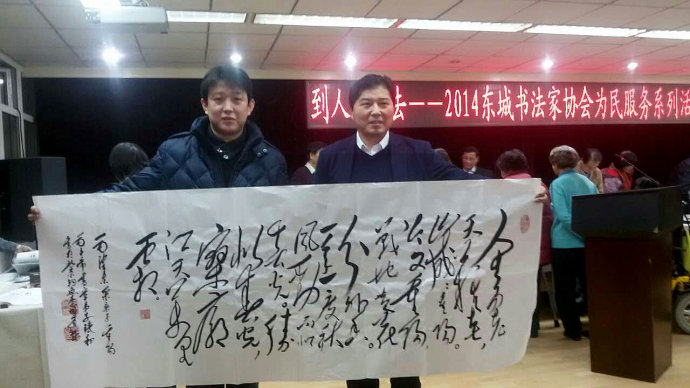 到人去——2014东城书法家协会为民服务系列活
人生易老
天难老岁
岁重阳
今又重阳
战地黄花
分外香
一年一度秋
风劲不似
春光胜
似春光
寥廓
江天万里
霜
毛泽东采桑子重阳